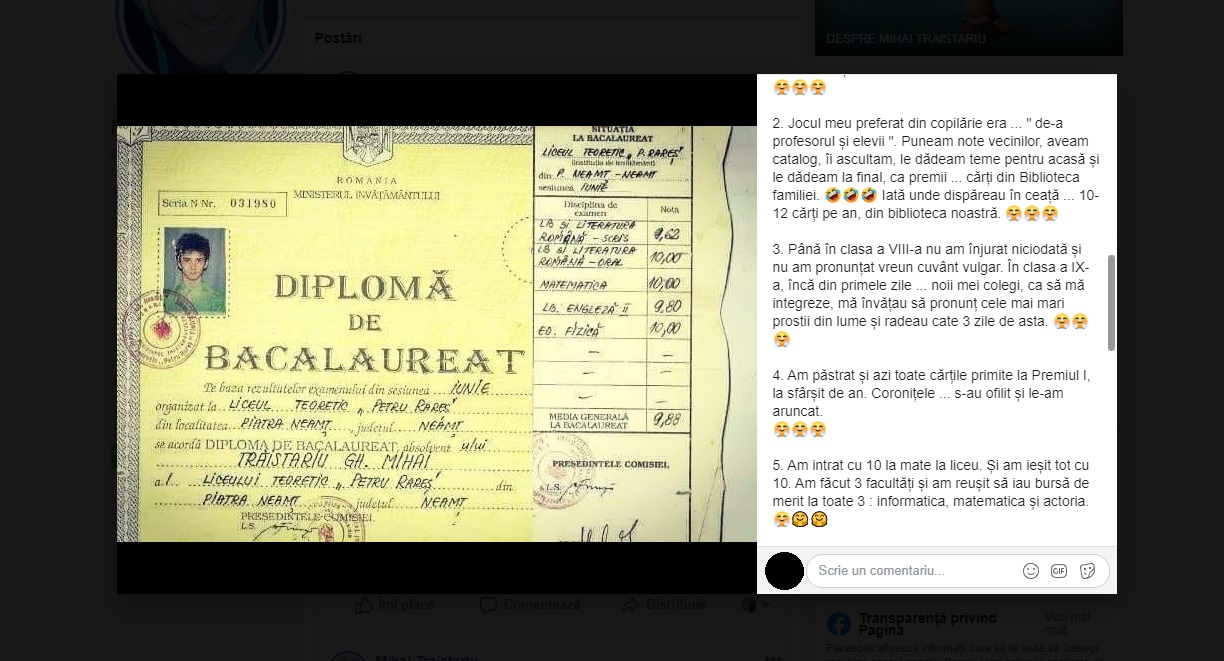 Postări
DESPRE MIHAI TRAISTARIU
ROMÂNIA
MINISTERUL ÎNVĂŢĂMÂNTULUI
Seria N Nr. 031980
DIPLOMĂ
DE
BACALAUREAT
Pe baza rezultatelor examenului din sesiunea IUNIE
organizat la LICEUL TEORETIC „ PETRU RAREŞ"
din localitatea PIATRA NEAMŢ, judeţul NEAMŢ
se acordă DIPLOMA DE BACALAUREAT, absolvent ului
TRAISTARIU GH. MIHAI
a.l. LICEULUI TEORETIC „ PETRU RAREŞ" din
PIATRA NEAMŢ judeţul NEAMŢ
PREŞEDINTELE COMISIEI,
L.S.
SITUAŢIA
LA BACALAUREAT
LICEUL TEORETIC „ P. RAREŞ"
(instituţia de învăţământ)
din P. NEAMŢ - NEAMŢ
sesiunea IUNIE
Disciplina de examen Nota
LB SI LITERATURA
ROMÂNĂ - SCRIS 9,62
LB SI LITERATURA
ROMÂNĂ - ORAL 10,00
MATEMATICA 10,00
LB. ENGLEZĂ II 9,80
ED. FIZICĂ 10,00
MEDIA GENERALĂ
LA BACALAUREAT 9,88
PREŞEDINTELE COMISIEI,
L.S.
🤗🤗🤗
2. Jocul meu preferat din copilărie era ... " de-a
profesorul și elevii ". Puneam note vecinilor, aveam
catalog, îi ascultam, le dădeam teme pentru acasă și
le dădeam la final, ca premii ... cărți din Biblioteca
familiei. 🤣🤣🤣 Iată unde dispăreau în ceață ... 10-
12 cărți pe an, din biblioteca noastră. 🤗🤗🤗
3. Până în clasa a VIII-a nu am înjurat niciodată și
nu am pronunțat vreun cuvânt vulgar. În clasa a IX-
a, încă din primele zile ... noii mei colegi, ca să mă
integreze, mă învățau să pronunț cele mai mari
prostii din lume și radeau cate 3 zile de asta. 🤗🤗
🤗
4. Am păstrat și azi toate cărțile primite la Premiul I,
la sfârșit de an. Coronițele ... s-au ofilit și le-am
aruncat.
🤗🤗🤗
5. Am intrat cu 10 la mate la liceu. Și am ieșit tot cu
10. Am făcut 3 facultăți și am reușit să iau bursă de
merit la toate 3 : informatica, matematica și actoria.
🤗🤗🤗
Scrie un comentariu...
GIF
Îmi place Comentează Distribuie
Mihai Traistariu
Transparența privind Pagina
Vezi mai mult
Facebook afișează informații care să te ajute să înțelegi